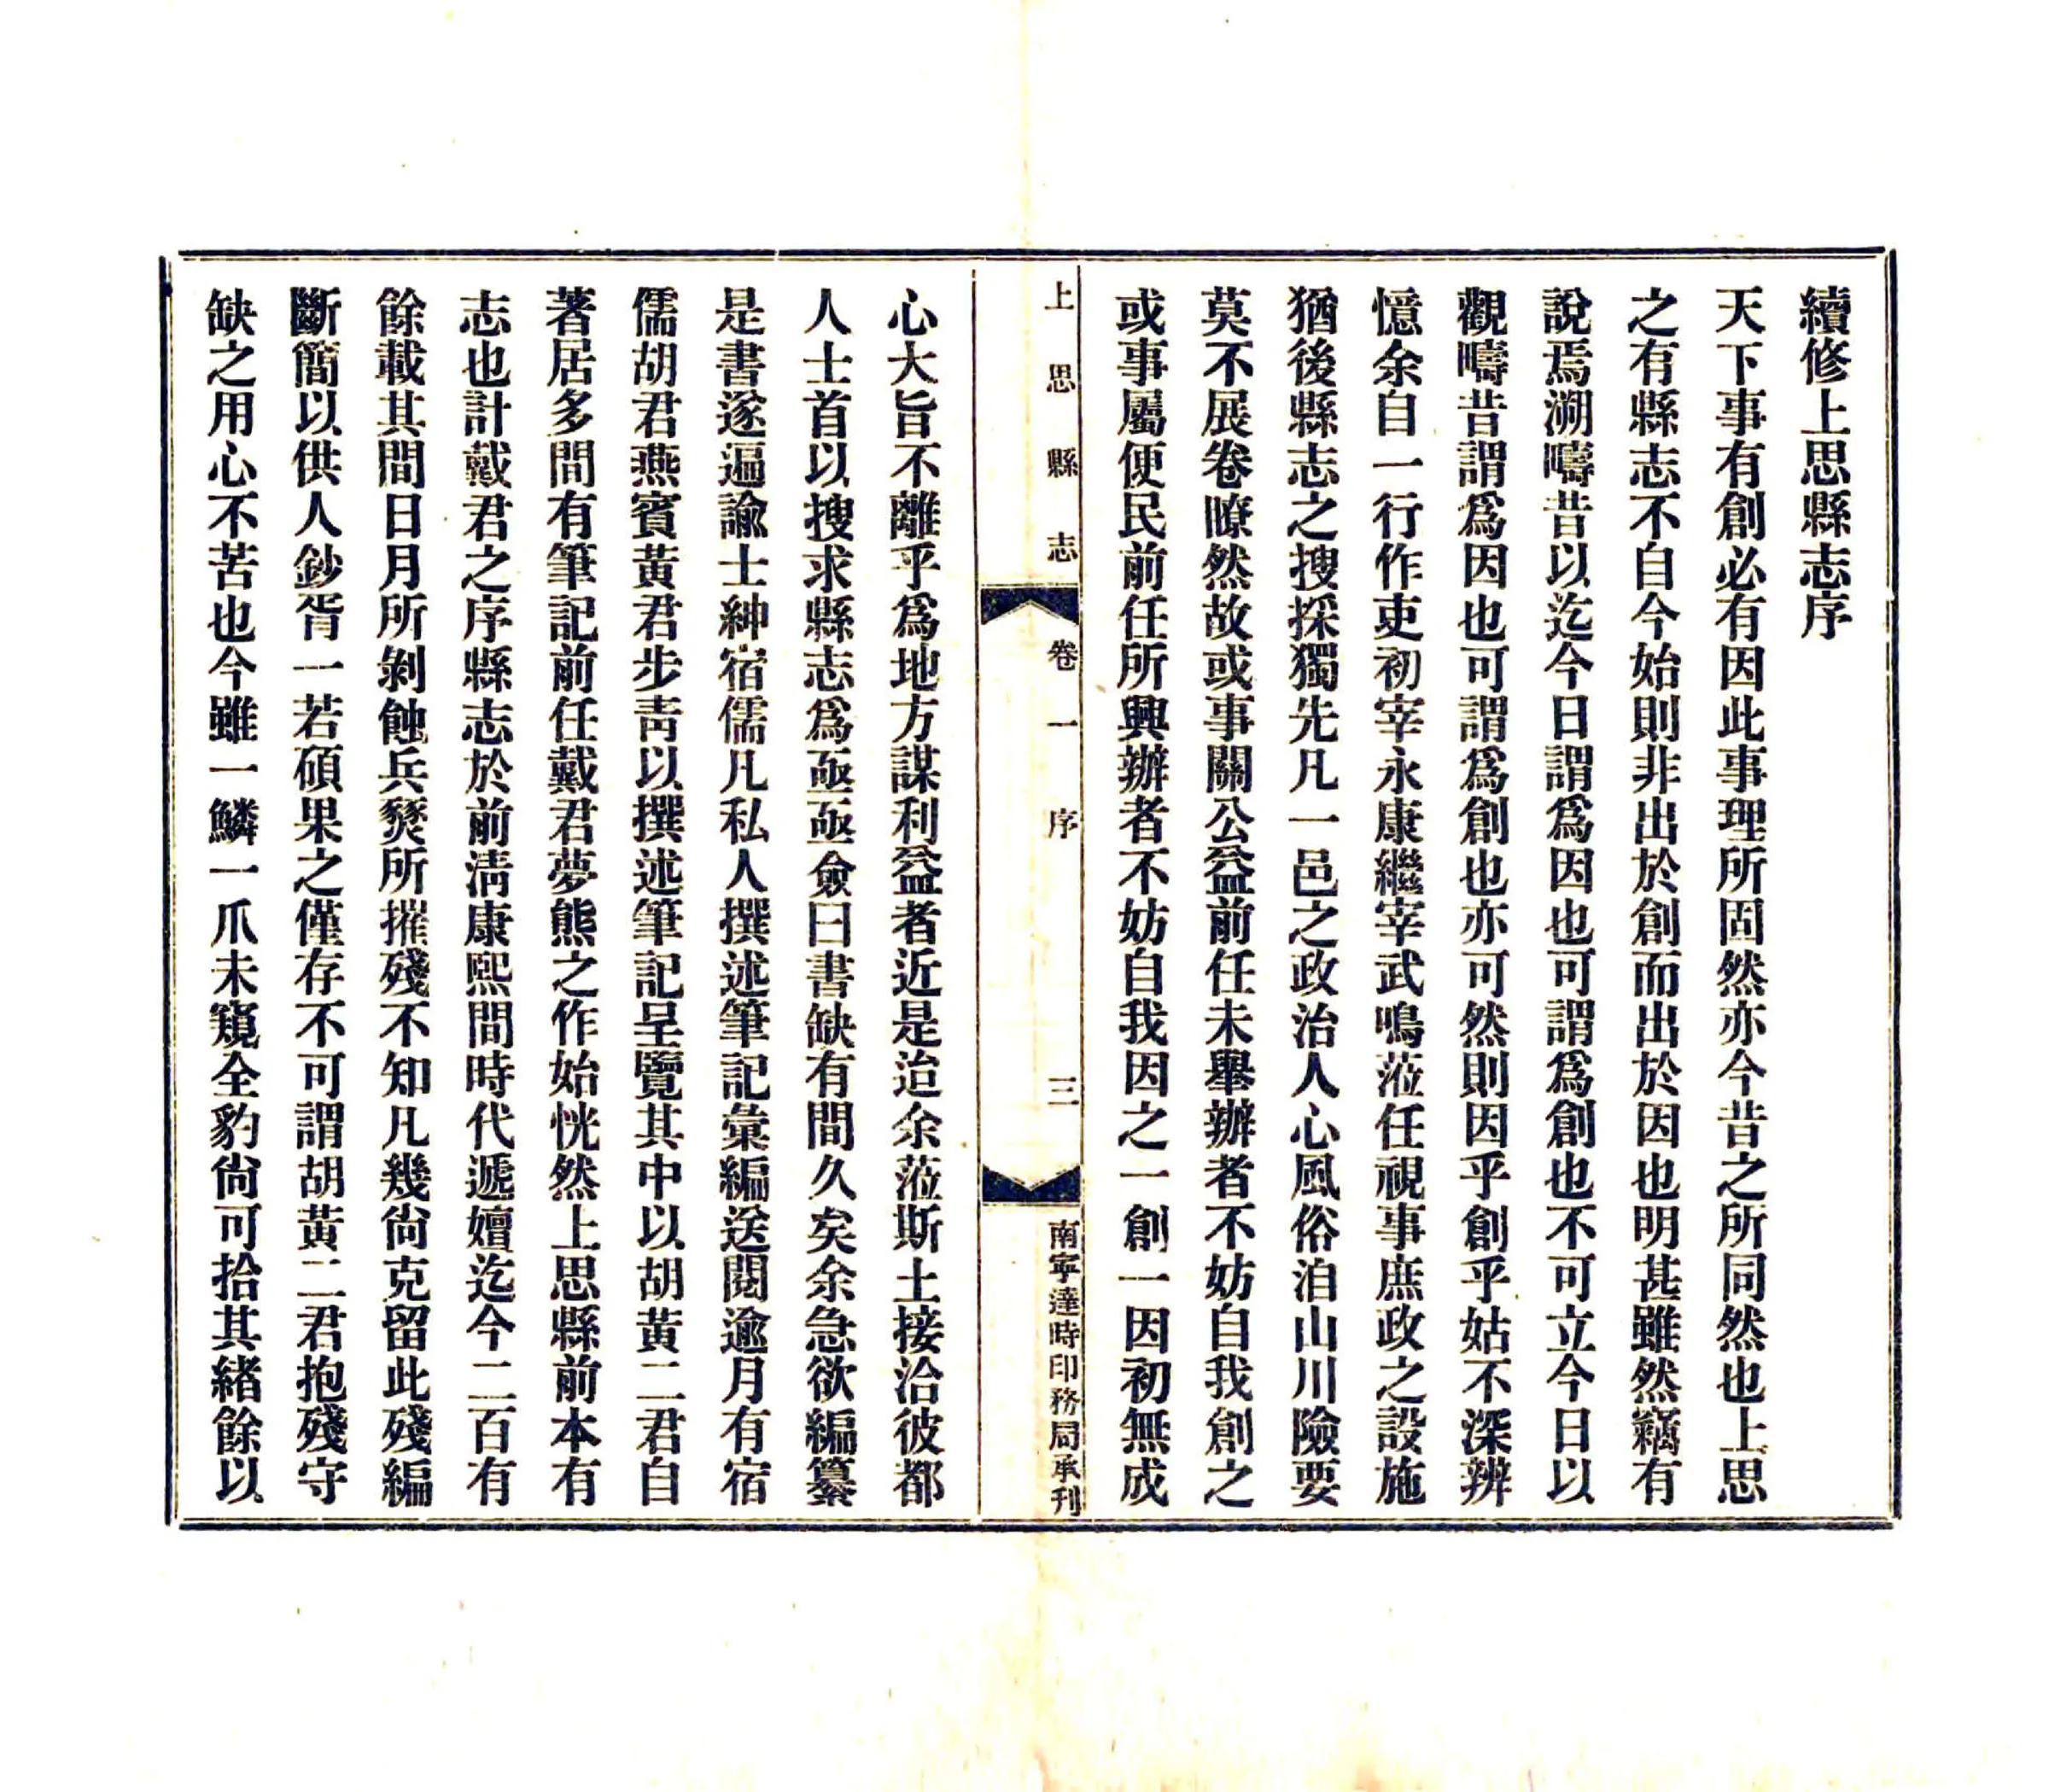 續修上思縣志序
天下事有創必有因此事理所固然亦今昔之所同然也上思
之有縣志不自今始則非出於創而出於因也明甚雖然竊有
說焉溯疇昔以迄今日謂爲因也可謂爲創也不可立今日以
觀疇昔謂爲因也可謂爲創也亦可然則因乎創乎姑不深辨
憶余自一行作吏初宰永康繼宰武鳴蒞任視事庶政之設施
猶後縣志之搜採獨先凡一邑之政治人心風俗洎山川險要
莫不展卷瞭然故或事關公益前任未舉辦者不妨自我創之
或事屬便民前任所興辦者不妨自我因之一創一因初無成
上思縣志
卷一 序
三
南寧達時印務局承刊
心大旨不離乎爲地方謀利益者近是迨余蒞斯土接洽彼都
人士首以搜求縣志爲亟亟僉曰書缺有間久矣余急欲編纂
是書遂遍諭士紳宿儒凡私人撰述筆記彙編送閱逾月有宿
儒胡君燕賓黃君步靑以撰述筆記呈覽其中以胡黃二君自
著居多間有筆記前任戴君夢熊之作始恍然上思縣前本有
志也計戴君之序縣志於前淸康熙間時代遞嬗迄今二百有
餘載其間日月所剝蝕兵燹所摧殘不知凡幾尙克留此殘編
斷簡以供人鈔胥一若碩果之僅存不可謂胡黃二君抱殘守
缺之用心不苦也今雖一鱗一爪未窺全豹尙可拾其緒餘以